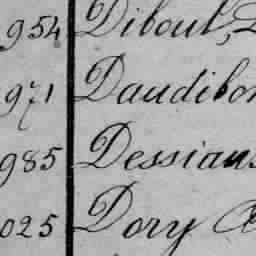 954 Diboul, D
971 Daudibon
985 Dessians
025 Dory Œ